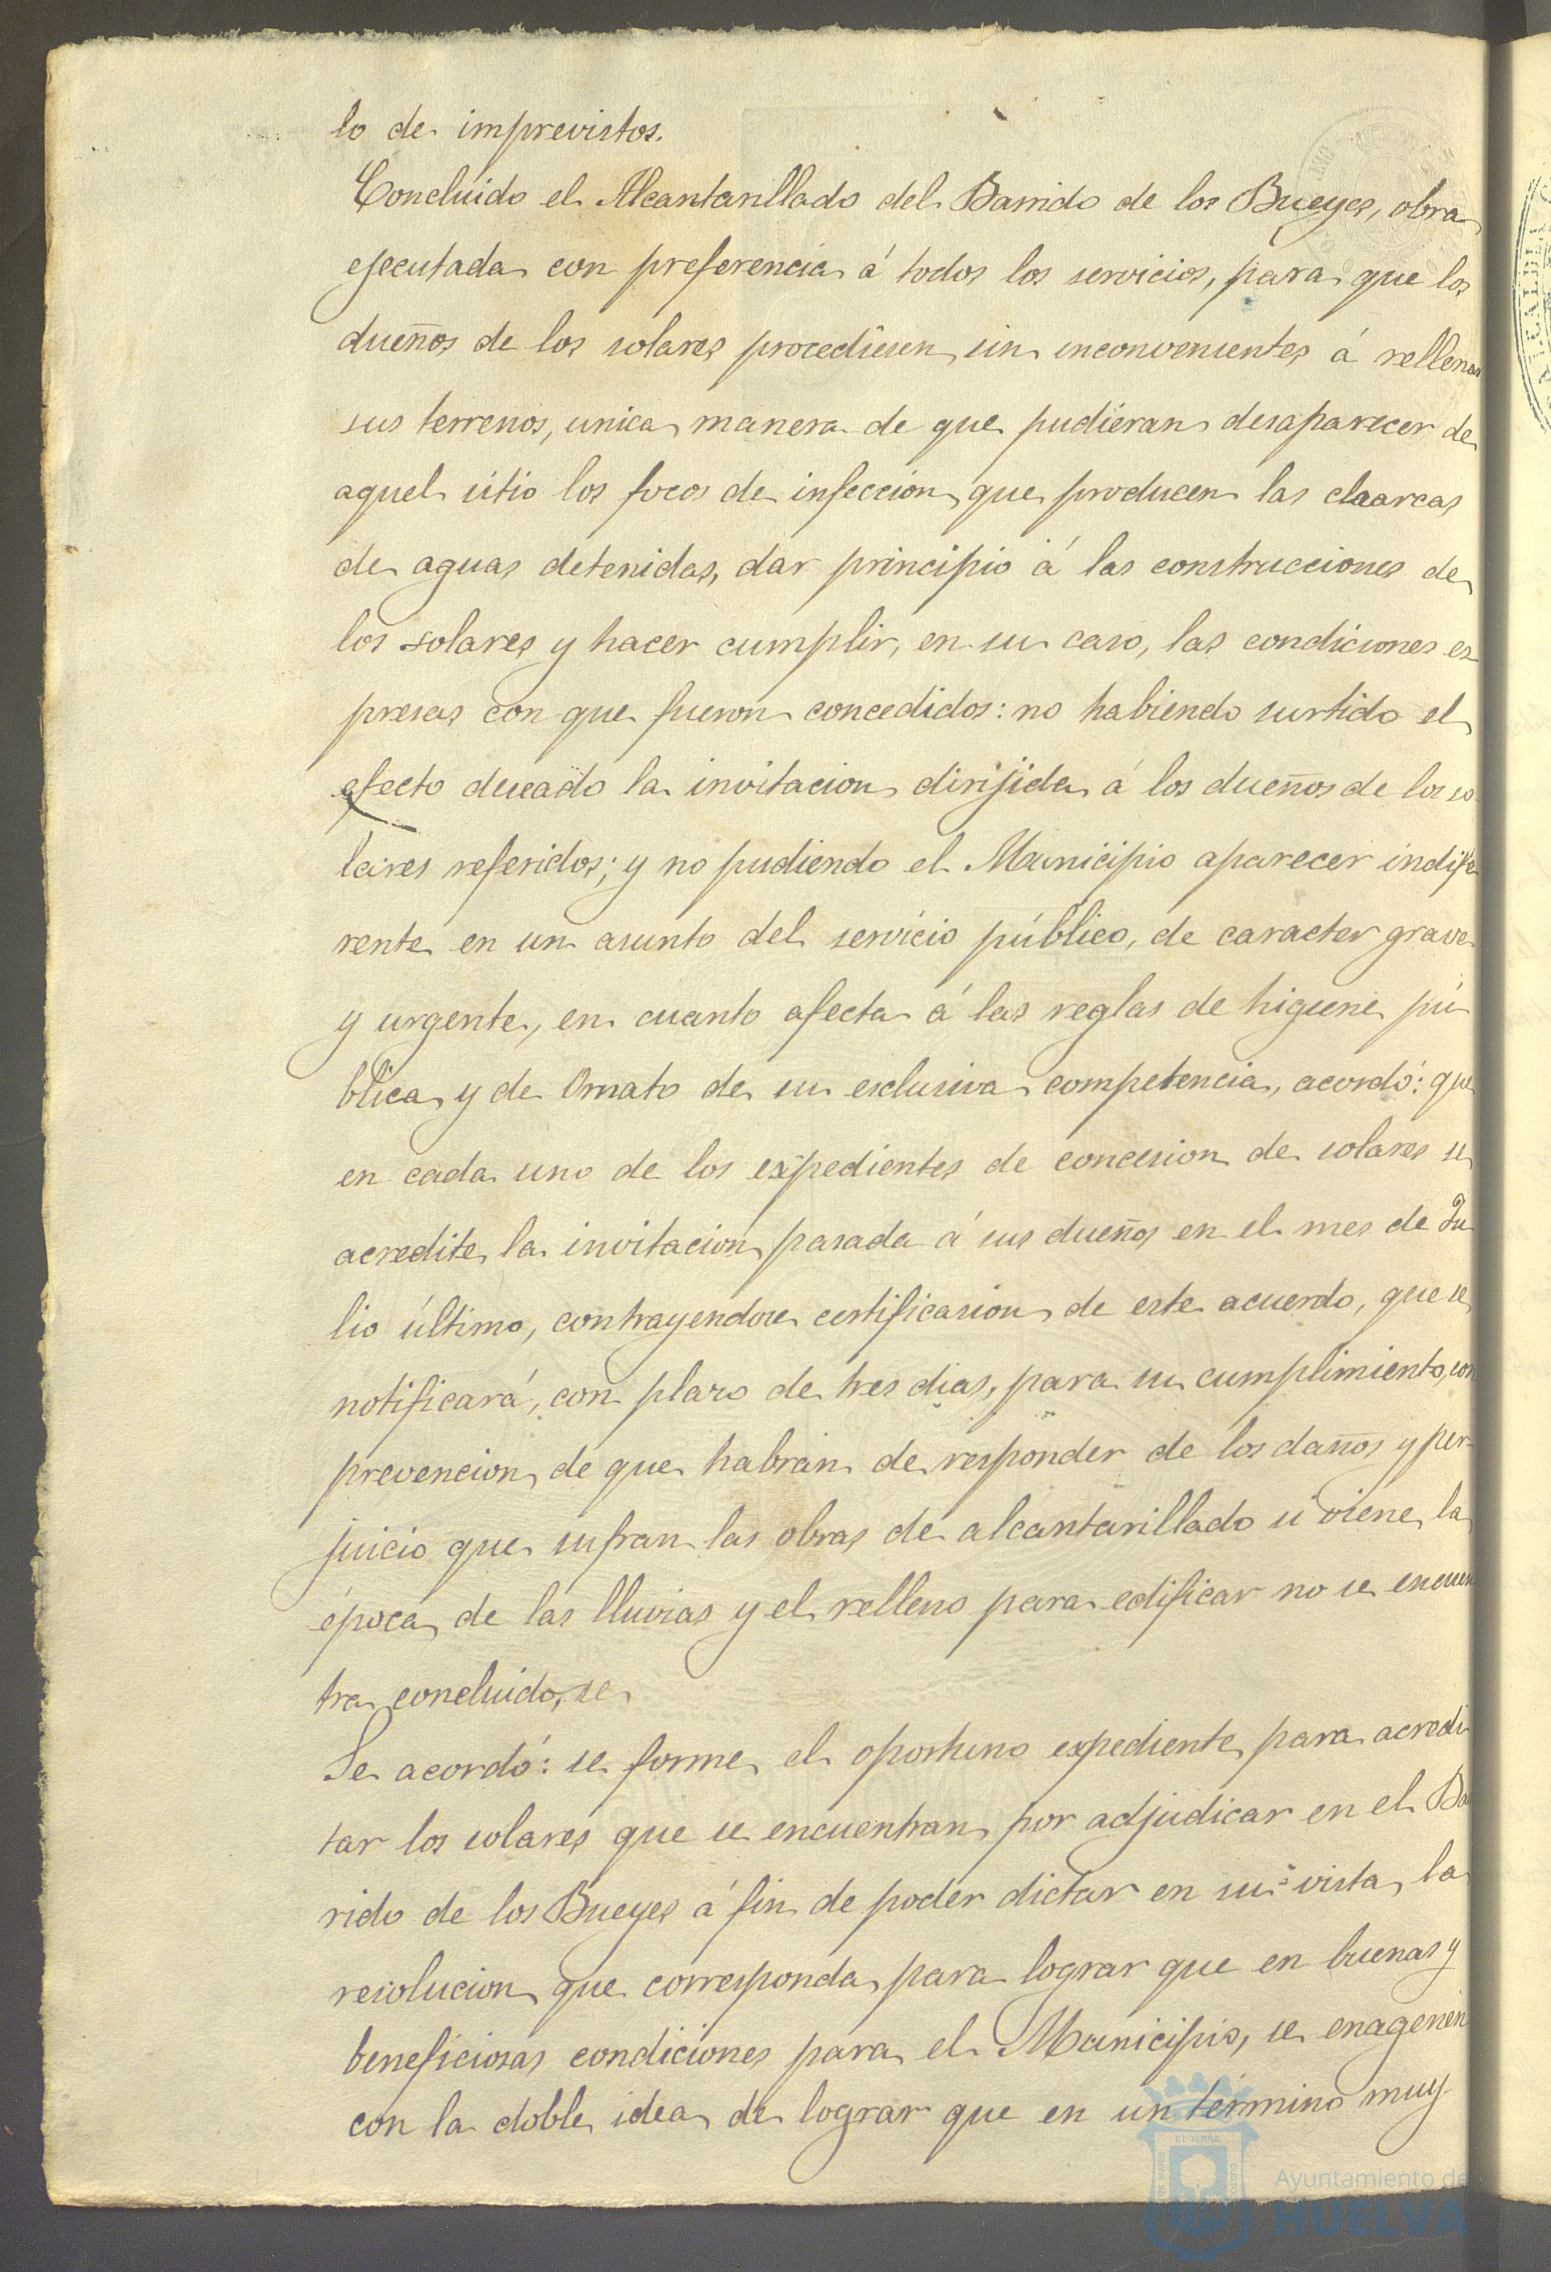 lo de imprevistos.
Concluido el Alcantarillado del Barrido de los Bueyes, obra
ejecutada con preferencia á todos los servicios, para que los
dueños de los solares procediesen sin inconvenientes á rellenar
sus terrenos, unica manera de que pudieran desaparecer de
aquel sitio los focos de infeccion que producen las claarcas
de aguas detenidas, dar principio á las construcciones de
los solares y hacer cumplir, en su caso, las condiciones es-
presas con que fueron concedidos: no habiendo surtido el
efecto deseado la invitacion dirijida á los dueños de los so-
lares referidos; y no pudiendo el Municipio aparecer indife
rente en un asunto del servicio público, de caracter grave
y urgente, en cuanto afecta á las reglas de higiene pú
blica y de Ornato de su esclusiva competencia, acordó: que
en cada uno de los expedientes de concesion de solares se
acredite la invitacion pasada á sus dueños en el mes de Ju
lio último, contrayendose certificasion de este acuerdo, que se
notificará, con plazo de tres dias, para su cumplimiento, con
prevencion de que habrán de responder de los daños y per-
juicio que sufran las obras de alcantarillado si viene la
época de las lluvias y el relleno para edificar no se encuen
tra concluido, se
Se acordó: se forme el oportuno expediente para acredi
tar los solares que se encuentran por adjudicar en el Ba
rido de los Bueyes á fin de poder dictar en su vista la
resolucion que corresponda para lograr que en buenas y
beneficiosas condiciones para el Municipio, se enagenen
con la doble idea de lograr que en un término muy
ET TERRA
Ayuntamiento de
HUELVA